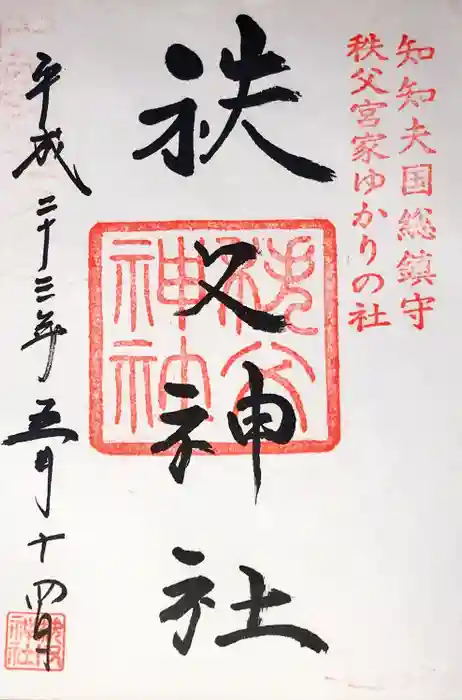 知知夫国総鎮守
秩父宮家ゆかりの社
秩父神社
秩父
神社
平成二十三年五月十四日
秩父
神社